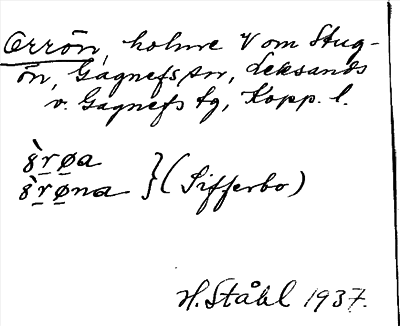 Orrön, holme V om Stug-
ön, Gagnefs sn, Leksands
o. Gagnefs tg, Kopp. l.
} (Sifferbo)
H. Ståhl 1937.